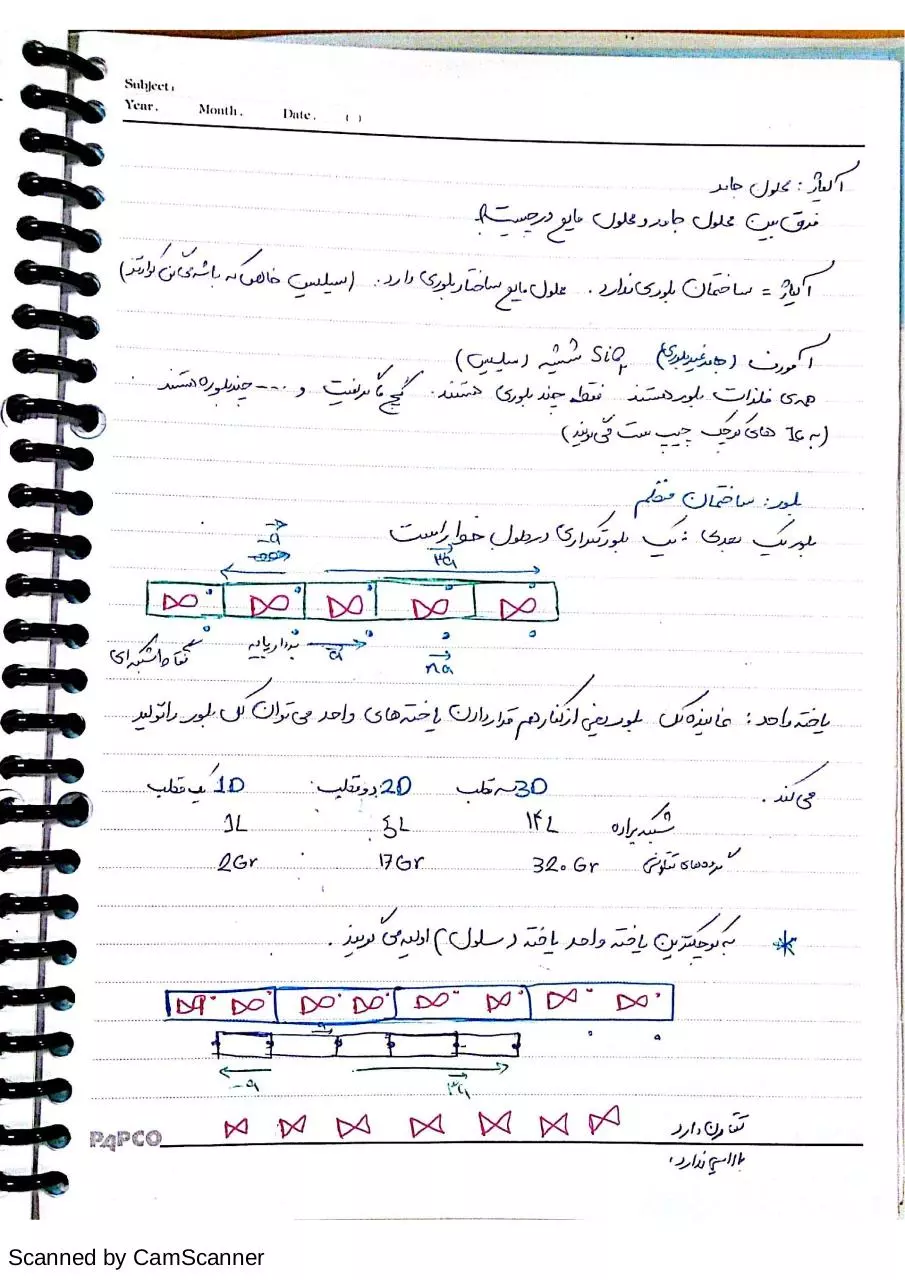 Subject:
Year. Month. Date. ( )
آلیاژ : محلول جامد
فرق بین محلول جامد و محلول مایع در چیست؟
آلیاژ = ساختمان بلوری ندارد . محلول مایع ساختار بلوری دارد . (سیلیس
آمورف (جامد غیربلوری) SiO۲ شیشه (سیلیس)
همه‌ی فلزات بلور هستند فقط چند بلوری هستند. گچ گرافیت و ---- چندبلوره هستند
(به IC های کوچک چیپ ست می گویند)
بلور : ساختمان منظم
بلور یک بعدی : یک بلور تکراری در طول خط راست
-a
۳a
نقاط شبکه ای بردار پایه a na
یاخته واحد : نماینده کل بلور یعنی از کنار هم قرار دادن یاخته های واحد می توان کل بلور را تولید
می کند .
3D سه قلب 2D دو قلب : 1D یک قلب
شبکه براوه ۱۴L 5L 1L
گروه های تقارنی 320 Gr 17Gr 2Gr
* به کوچکترین یاخته واحد یاخته (سلول) اولیه می گویند .
a
-a ۳a
تقارن دارد
PAPCO
ندارد.
Scanned by CamScanner